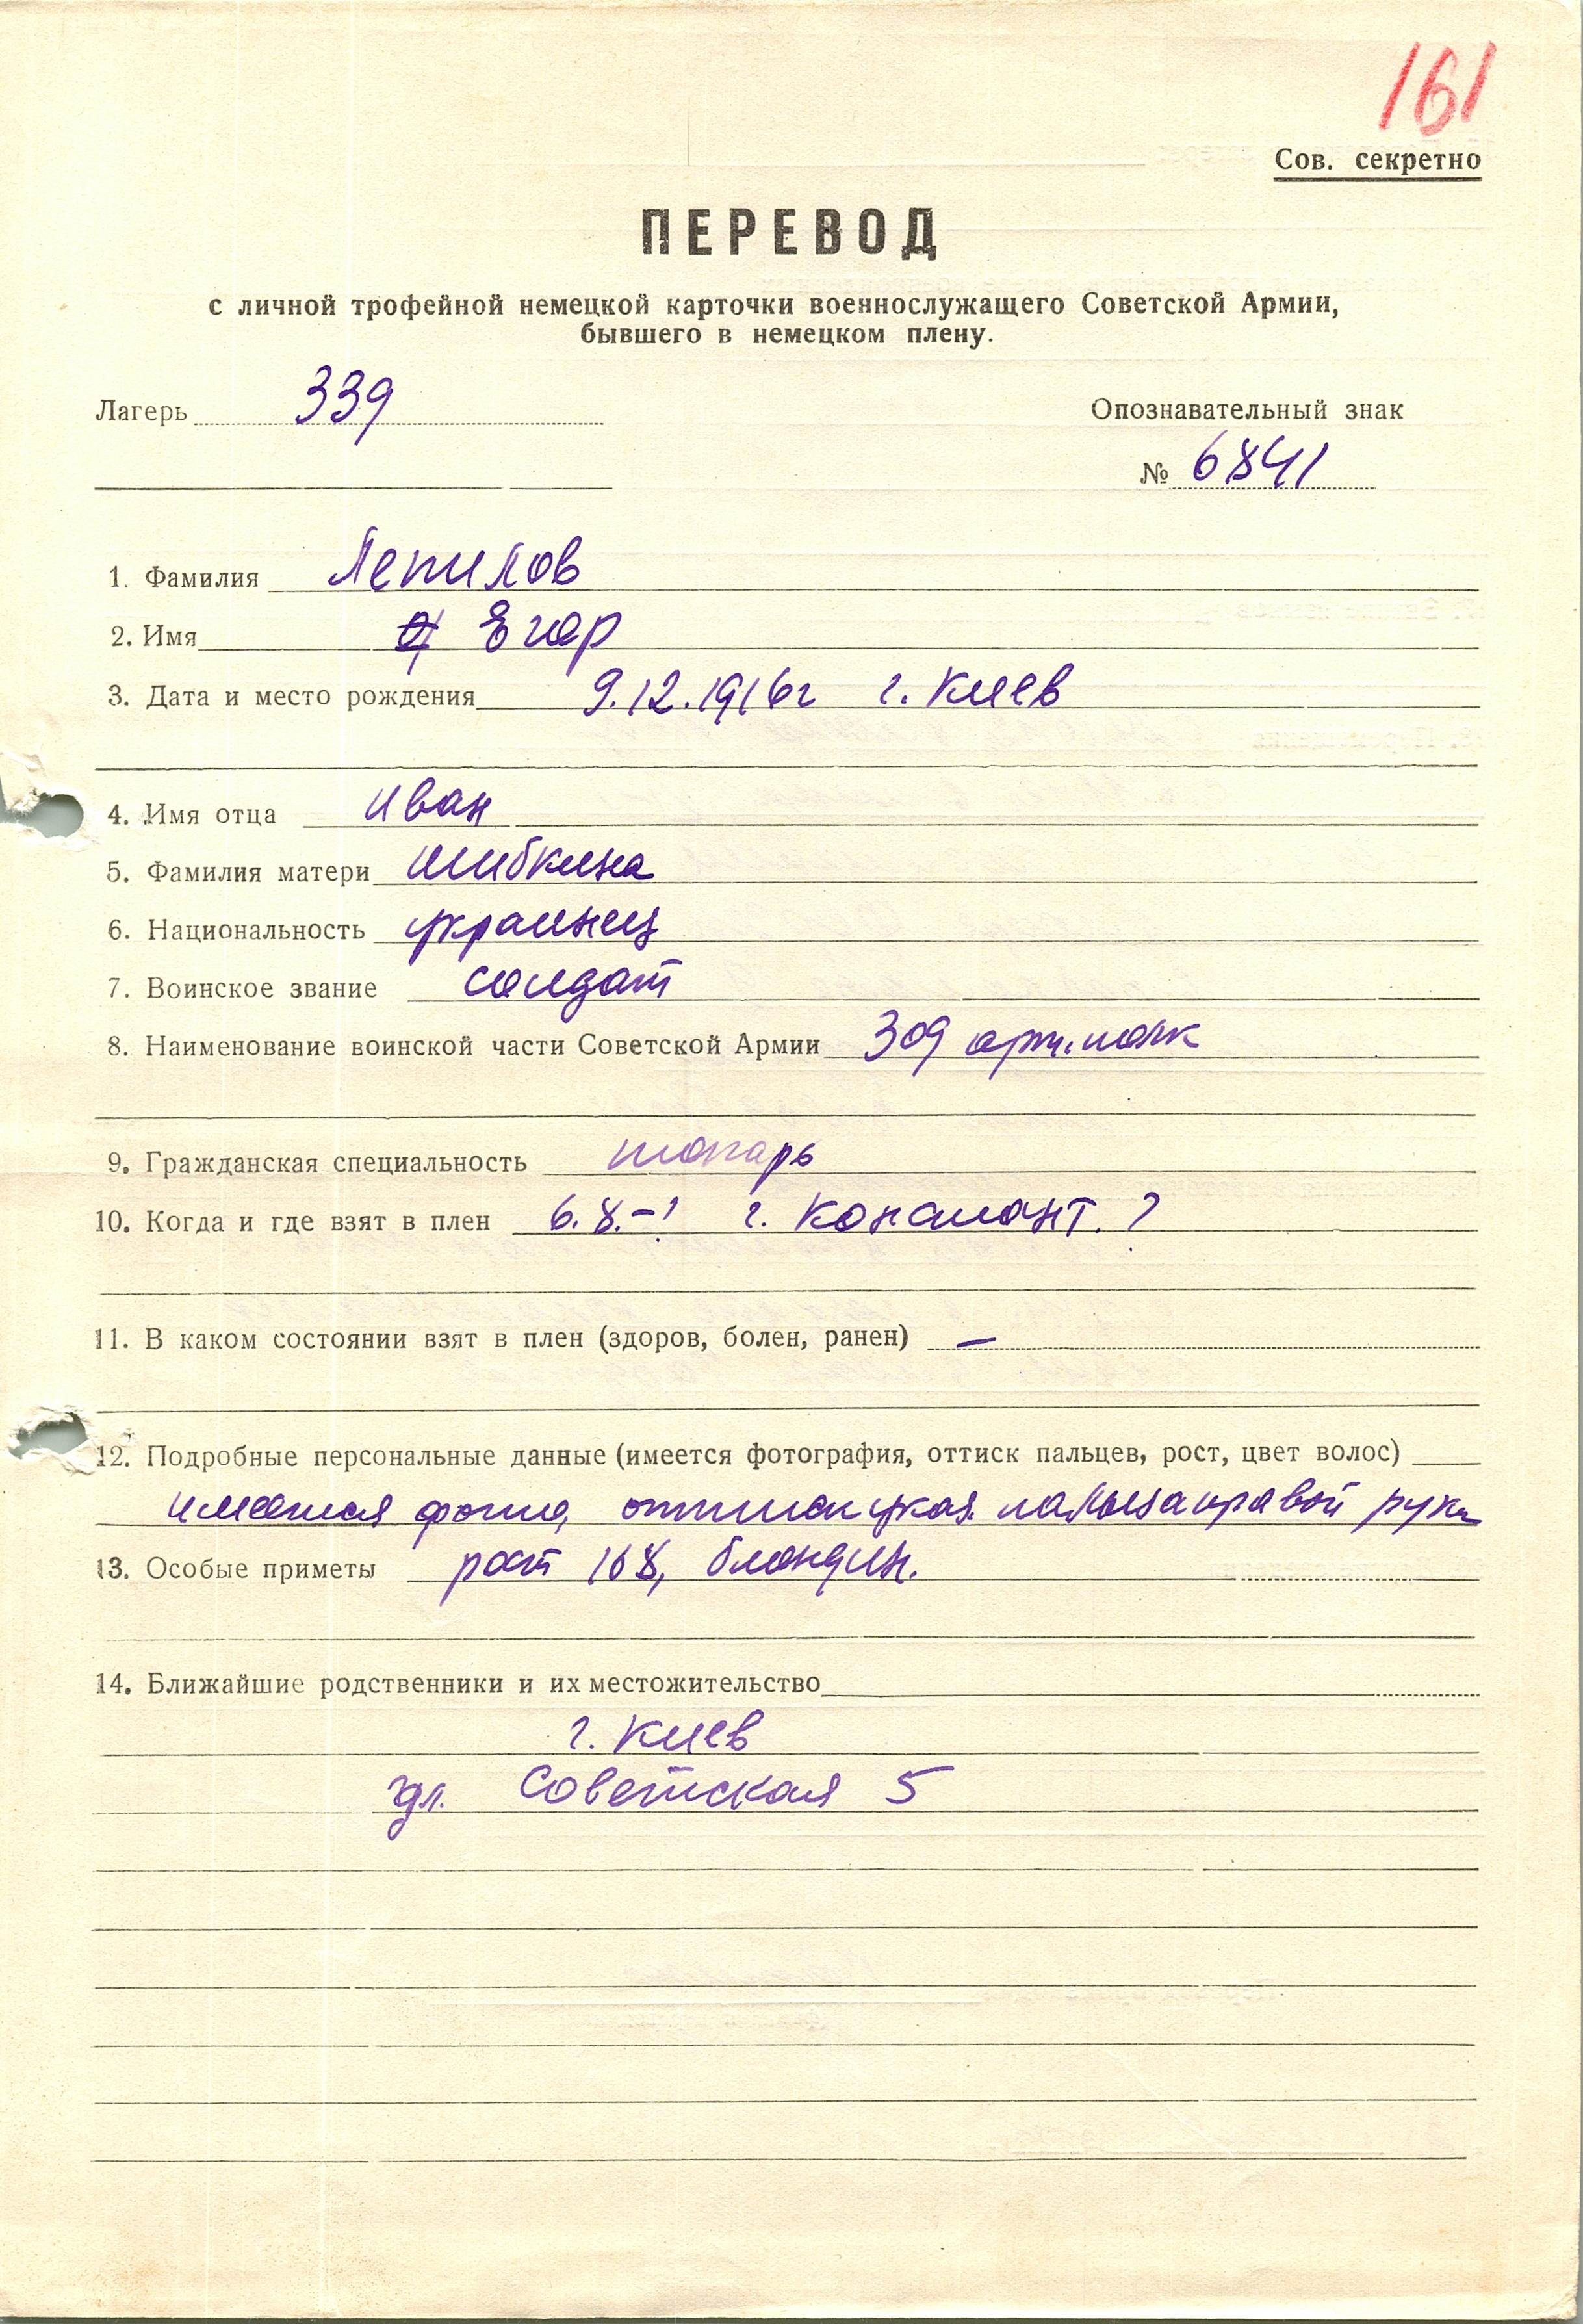 161
Сов. секретно
ПЕРЕВОД
с личной трофейной немецкой карточки военнослужащего Советской Армии,
бывшего в немецком плену.
Лагерь 339
Опознавательный знак
№ 6841
1. Фамилия Лепилов
2. Имя Егор
3. Дата и место рождения 9.12.1916г г. Киев
4. Имя отца Иван
5. Фамилия матери Шибкина
6. Национальность украинец
7. Воинское звание солдат
8. Наименование воинской части Советской Армии 309 арт. полк
9. Гражданская специальность токарь
10. Когда и где взят в плен 6.8.-? г. Констант. ?
11. В каком состоянии взят в плен (здоров, болен, ранен) –
12. Подробные персональные данные (имеется фотография, оттиск пальцев, рост, цвет волос)
имеется фото, оттиск указ. пальца правой руки
13. Особые приметы рост 168, блондин.
14. Ближайшие родственники и их местожительство
г. Киев
ул. Советская 5